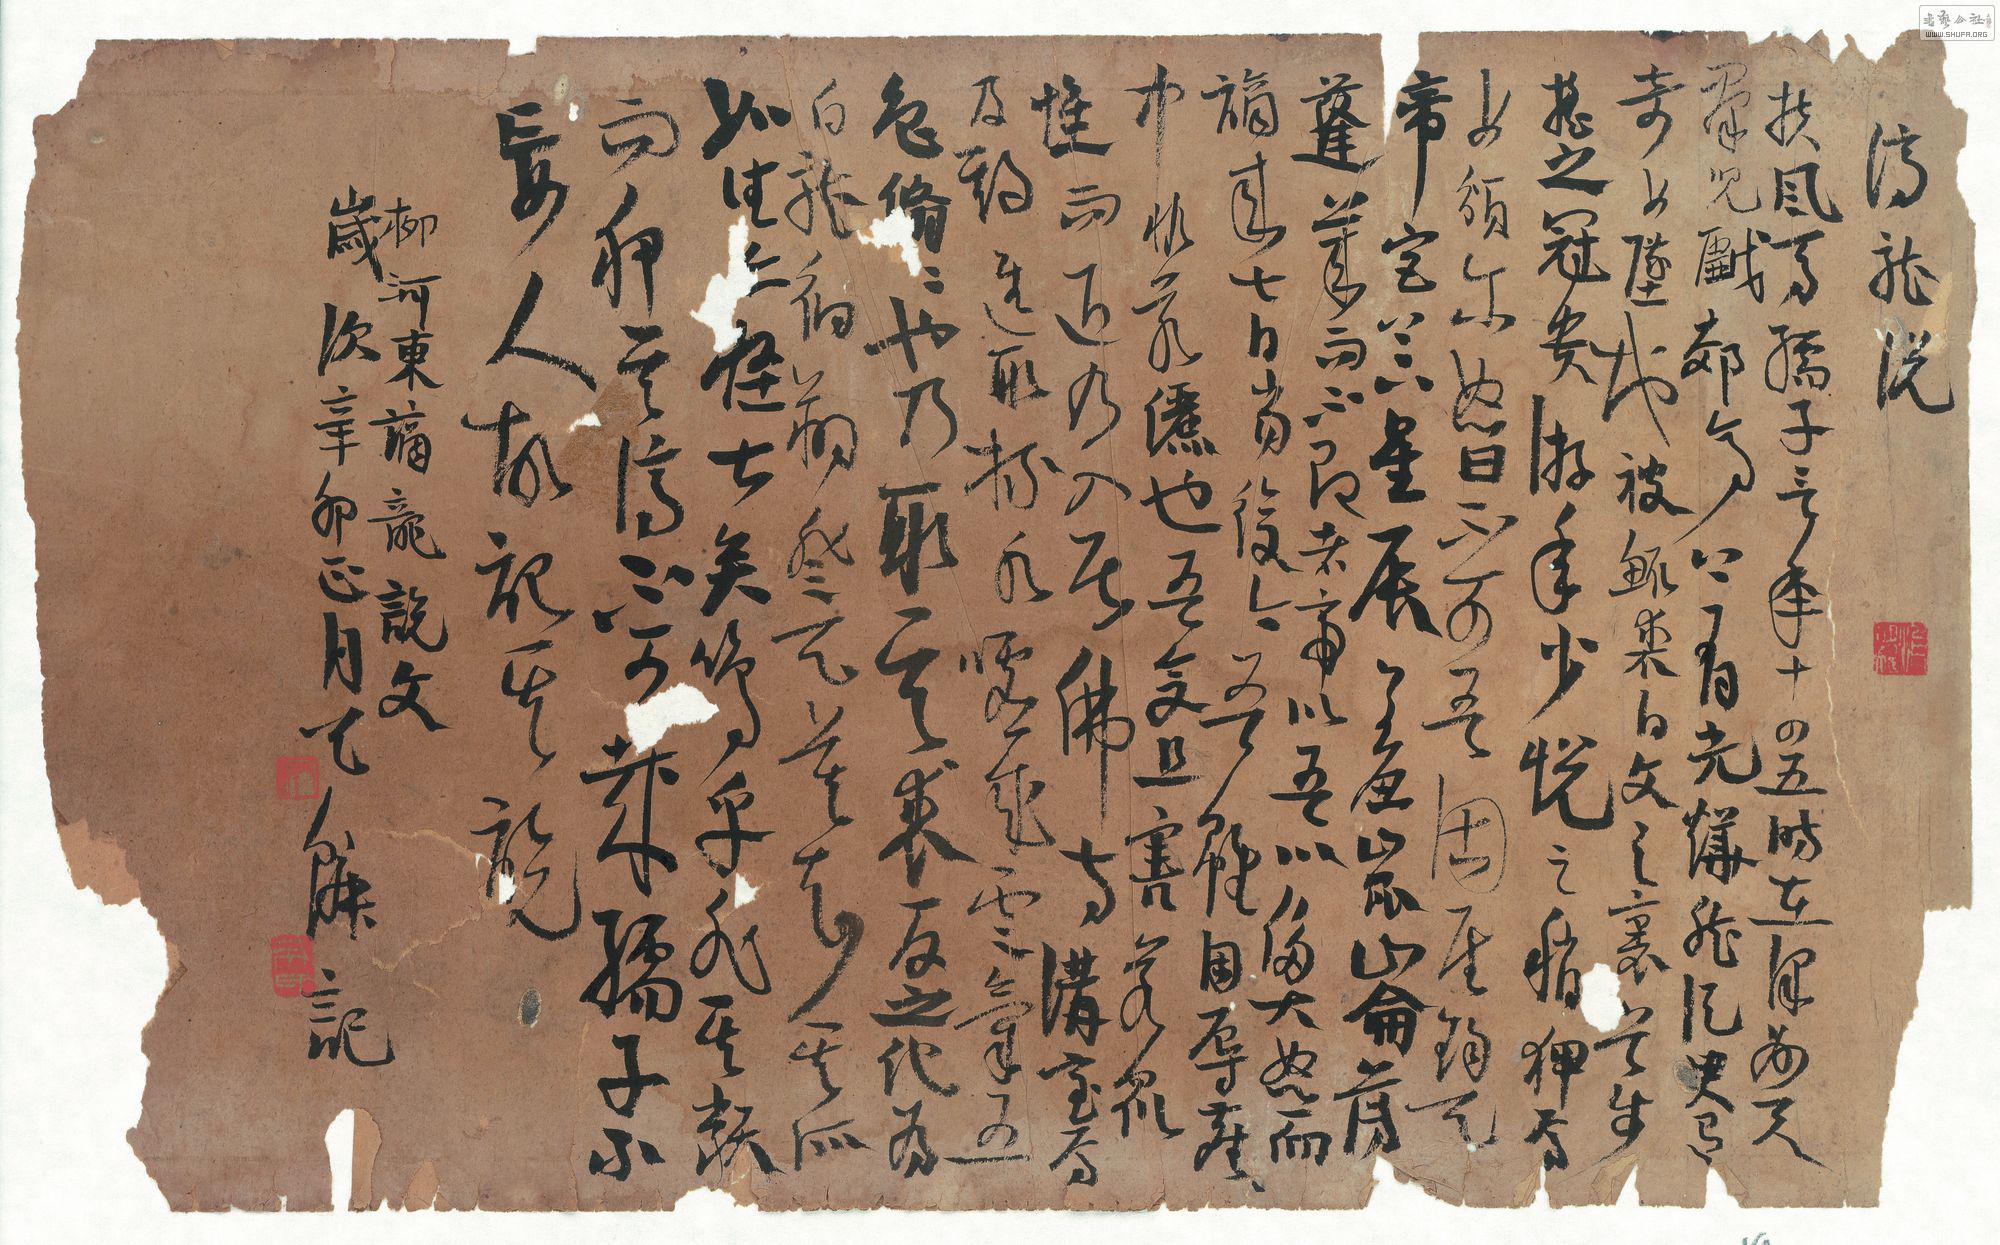 謫龍說
扶風馬孺子言年十四五時在澤州與
羣兒戲郊亭上有光燁然臾有
奇女墜地被緅裘白文之裏首步
搖之冠貴游年少悅之稍狎焉
女頩尔怒曰不可吾固居鈞天
帝宮下上星辰崑崙薄
蓬萊而不即者帝以吾以侈大怒而
謫來七日當復今吾雖困辱塵
中非若儷也吾且害若眾
而退乃入居佛寺講室焉
及期進取杯水噓成雲氣五
色翛〻也乃取其裘反之化為
白龍徊翔登天莫知其所
亦怪甚矣嗚乎非其類
而狎其謫不可哉孺子不
妄人故記其說
柳河東謫龍說文
歲次辛卯正月記
書藝公社
WWW.SHUFA.ORG